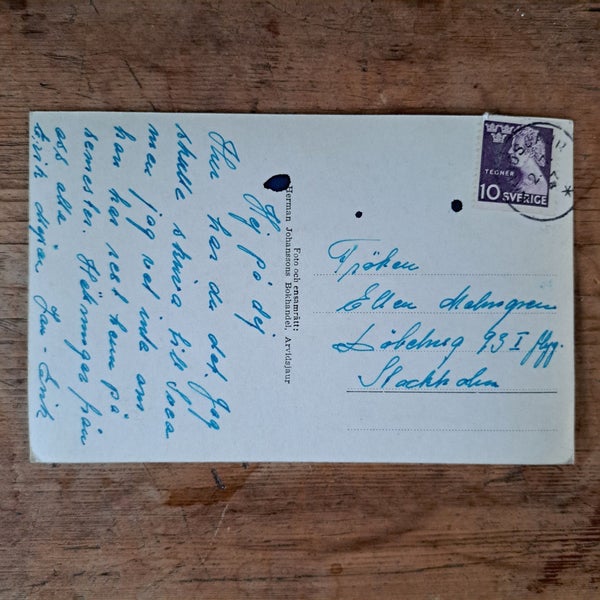 Hej på dej
Hur har du det. Jag
skulle skriva till Svea
men jag vet inte om
han har rest hem på
semester. Hälsningar från
oss alla
Erik Jan-Erik
Foto och ensamrätt:
Herman Johanssons Bokhandel, Arvidsjaur
TEGNER
10 SVERIGE
Fröken
Ellen Malmgren
Döbelnsg 93 I flyg.
Stockholm